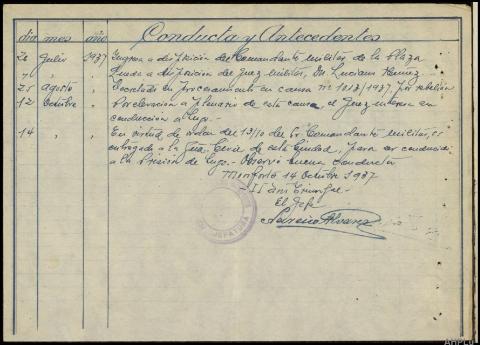 dia mes año Conducta y Antecedentes
20 Julio 1937 Ingresa a disposición del Comandante militar de la Plaza
" " " Queda a disposición del Juez militar, Dn Luciano
25 agosto " Decretado su procesamiento en causa nº 1013/1937 por rebelión
12 Octubre " Por elevación a plenario de esta causa, el Juez interesa su
conducción a Lugo.
14 " " En virtud de orden del 13/10 del Sr Comandante militar, es
entregado a la Gua. Civil de esta Ciudad, para ser conducido
a la Prisión de Lugo. Observó buena conducta
Monforte 14 Octubre 1937
II Año Triunfal
El Jefe
Alvarez
JEFATURA